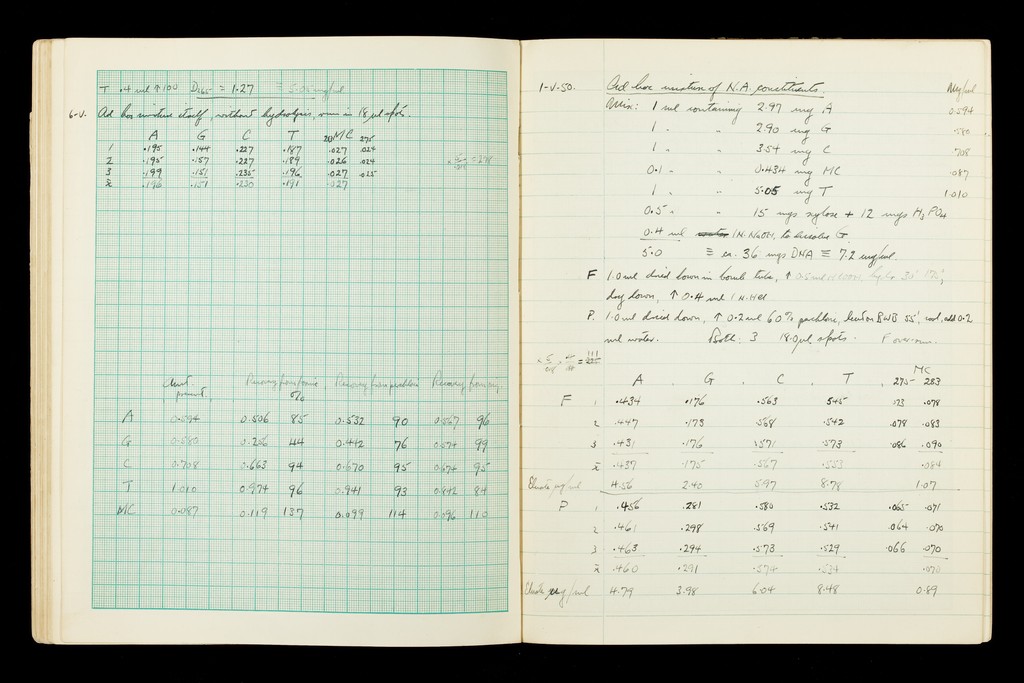 T .4 ml ↑ 100 D265 = 1.27 ≡ 5.05 mg/ml
6-V. Ad hoc mixture itself, without hydrolysis, run in 18 µl spots.
A G C T MC 275
1 .195 .144 .227 .187 .027 .024
2 .195 .157 .227 .189 .026 .024
3 .199 .151 .235 .196 .027 .025
x̄ .196 .151 .230 .191 .027
Amt. present, Recovery from formic % Recovery from perchloric Recovery from orig.
A 0.594 0.506 85 0.532 90 0.567 96
G 0.580 0.256 44 0.442 76 0.574 99
C 0.708 0.663 94 0.670 95 0.674 95
T 1.010 0.974 96 0.941 93 0.842 84
MC 0.087 0.119 137 0.099 114 0.096 110
1-V-50. Ad hoc mixture of N.A. constituents. mg/ml
Mix: 1 ml containing 2.97 mg A 0.594
1 " " 2.90 mg G .580
1 " " 3.54 mg C .708
0.1 " " 0.434 mg MC .087
1 " " 5.05 mg T 1.010
0.5 " " 15 mgs xylose + 12 mgs H3PO4
0.4 ml water 1N.NaOH, to dissolve G.
5.0 ≡ ca. 36 mgs DNA ≡ 7.2 mg/ml.
F 1.0 ml dried down in bomb tube, ↑ 0.5 ml
dry down, ↑ 0.4 ml 1 N.HCl
P. 1.0 ml dried down, ↑ 0.2 ml 60% perchloric, heated on BWB 55', cool, add 0.2
ml water. Both: 3 18.0 µl spots. F over-run.
MC
A . G . C . T . 275 283
F 1 .434 .176 .563 .545 .073 .078
2 .447 .173 .568 .542 .078 .083
3 .431 .176 .571 .573 .086 .090
x̄ .437 .175 .567 .553 .084
Eluate µg/ml 4.56 2.40 5.97 8.78 1.07
P 1 .456 .281 .580 .532 .065 .071
2 .461 .298 .569 .541 .064 .070
3 .463 .294 .573 .529 .066 .070
x̄ .460 .291 .574 .534 .070
Eluate µg/ml 4.79 3.98 6.04 8.48 0.89